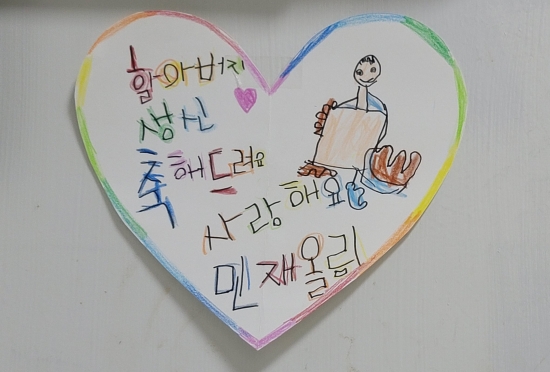 할아버지
생신
축해드려요
사랑해요
민재올림